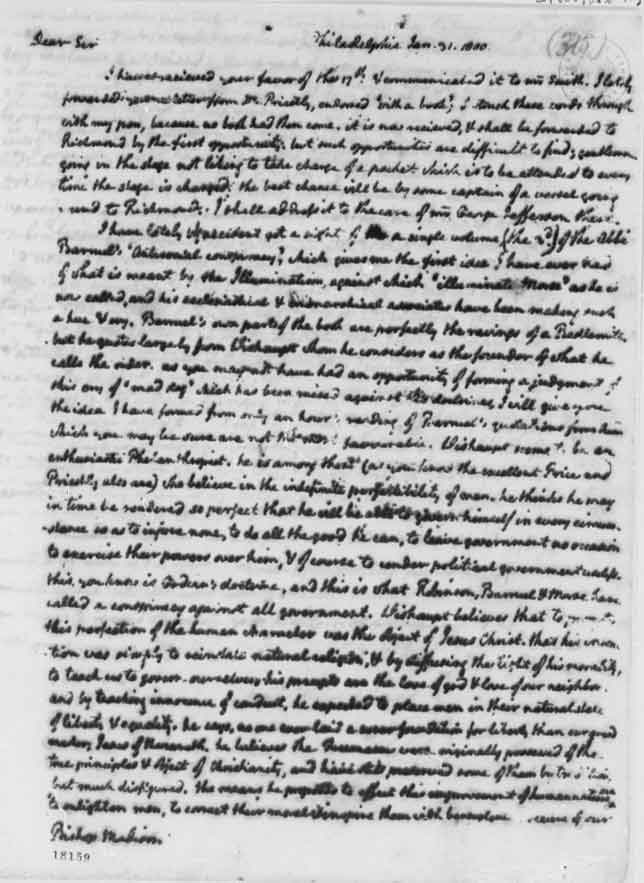 Philadelphia Jan. 31. 1800.
Dear Sir
I have recieved your favor of the 17th & communicated it to mr Smith. I lately
forwarded your letter from Dr. Priestly, endorsed 'with a book'; I struck those words through
with my pen, because no book had then come. it is now recieved, & shall be forwarded to
Richmond by the first opportunity: but such opportunities are difficult to find; gentlemen
going in the stage not liking to take charge of a packet which is to be attended to every
time the stage is changed. the best chance will be by some captain of a vessel going
round to Richmond. I shall address it to the care of mr George Jefferson there.
I have lately by accident got a sight of a single volume (the 3d.) of the Abbé
Barruel's 'Antisocial conspiracy', which gives me the first idea I have ever had
of what is meant by the Illuminatism, against which 'illuminate Morse' as he is
now called, and his ecclesiastical & monarchical associates have been making such
a hue & cry. Barruel's own parts of the book are perfectly the ravings of a Bedlamite.
but he quotes largely from Wishaupt whom he considers as the founder of what he
calls the order. as you may not have had an opportunity of forming a judgment of
this cry of 'mad dog' which has been raised against his doctrines, I will give you
the idea I have formed from only an hour's reading of Barruel's quotations from him
which you may be sure are not the most favourable. Wishaupt seems to be an
enthusiastic Philanthropist. he is among those (as you know the excellent Price and
Priestly also are) who believe in the indefinite perfectibility of man. he thinks he may
in time be rendered so perfect that he will be able to govern himself in every circum-
stance so as to injure none, to do all the good he can, to leave government no occasion
to exercise their powers over him, & of course to render political government useless.
this you know is Godwin's doctrine, and this is what Robinson, Barruel & Morse have
called a conspiracy against all government. Wishaupt believes that to
this perfection of the human character was the object of Jesus Christ. that his inten-
tion was simply to reinstate natural religion, & by diffusing the light of his morality,
to teach us to govern ourselves. his precepts are the love of god & love of our neighbor.
and by teaching innocence of conduct, he expected to place men in their natural state
of liberty & equality. he says, no one ever laid a surer foundation for liberty than our grand
master, Jesus of Nazareth. he believes the Freemasons were originally possessed of the
true principles & object of Christianity, and have still preserved some of them by tradition,
but much disfigured. the means he proposes to effect this improvement of human nature are
'to enlighten men, to correct their morals & inspire them with benevolence. secure of our
Bishop Madison
18159